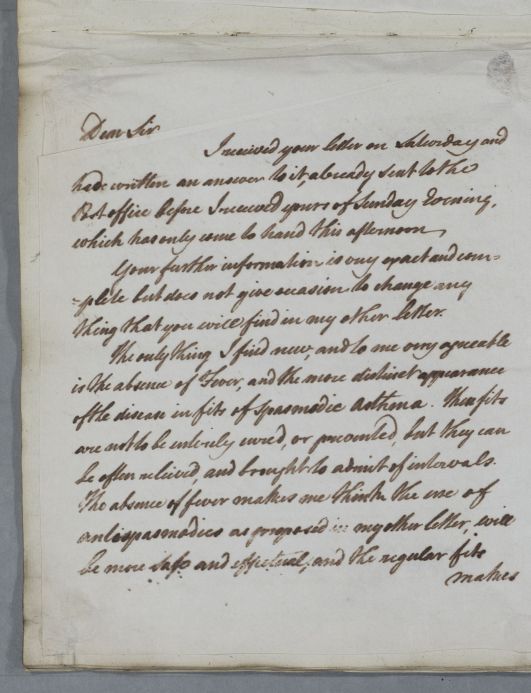 Dear Sir
I received your letter on Saturday and
had written an answer to it, already sent to the
Post office before I received yours of Sunday Evening,
which has only come to hand this afternoon.
Your further information is very exact and com=
=plete but does not give occasion to change any
thing that you will find in my other letter.
The only thing I find new, and to me very agreeable
is the absence of Fever, and the more distinct appearance
of the disease in fits of spasmodic asthma. These fits
are not to be entirely cured, or prevented, but they can
be often relieved, and brought to admit of intervals.
The absence of fever makes me think the use of
antispasmodics as proposed in my other letter, will
be more safe and effectual, and the regular fits
makes